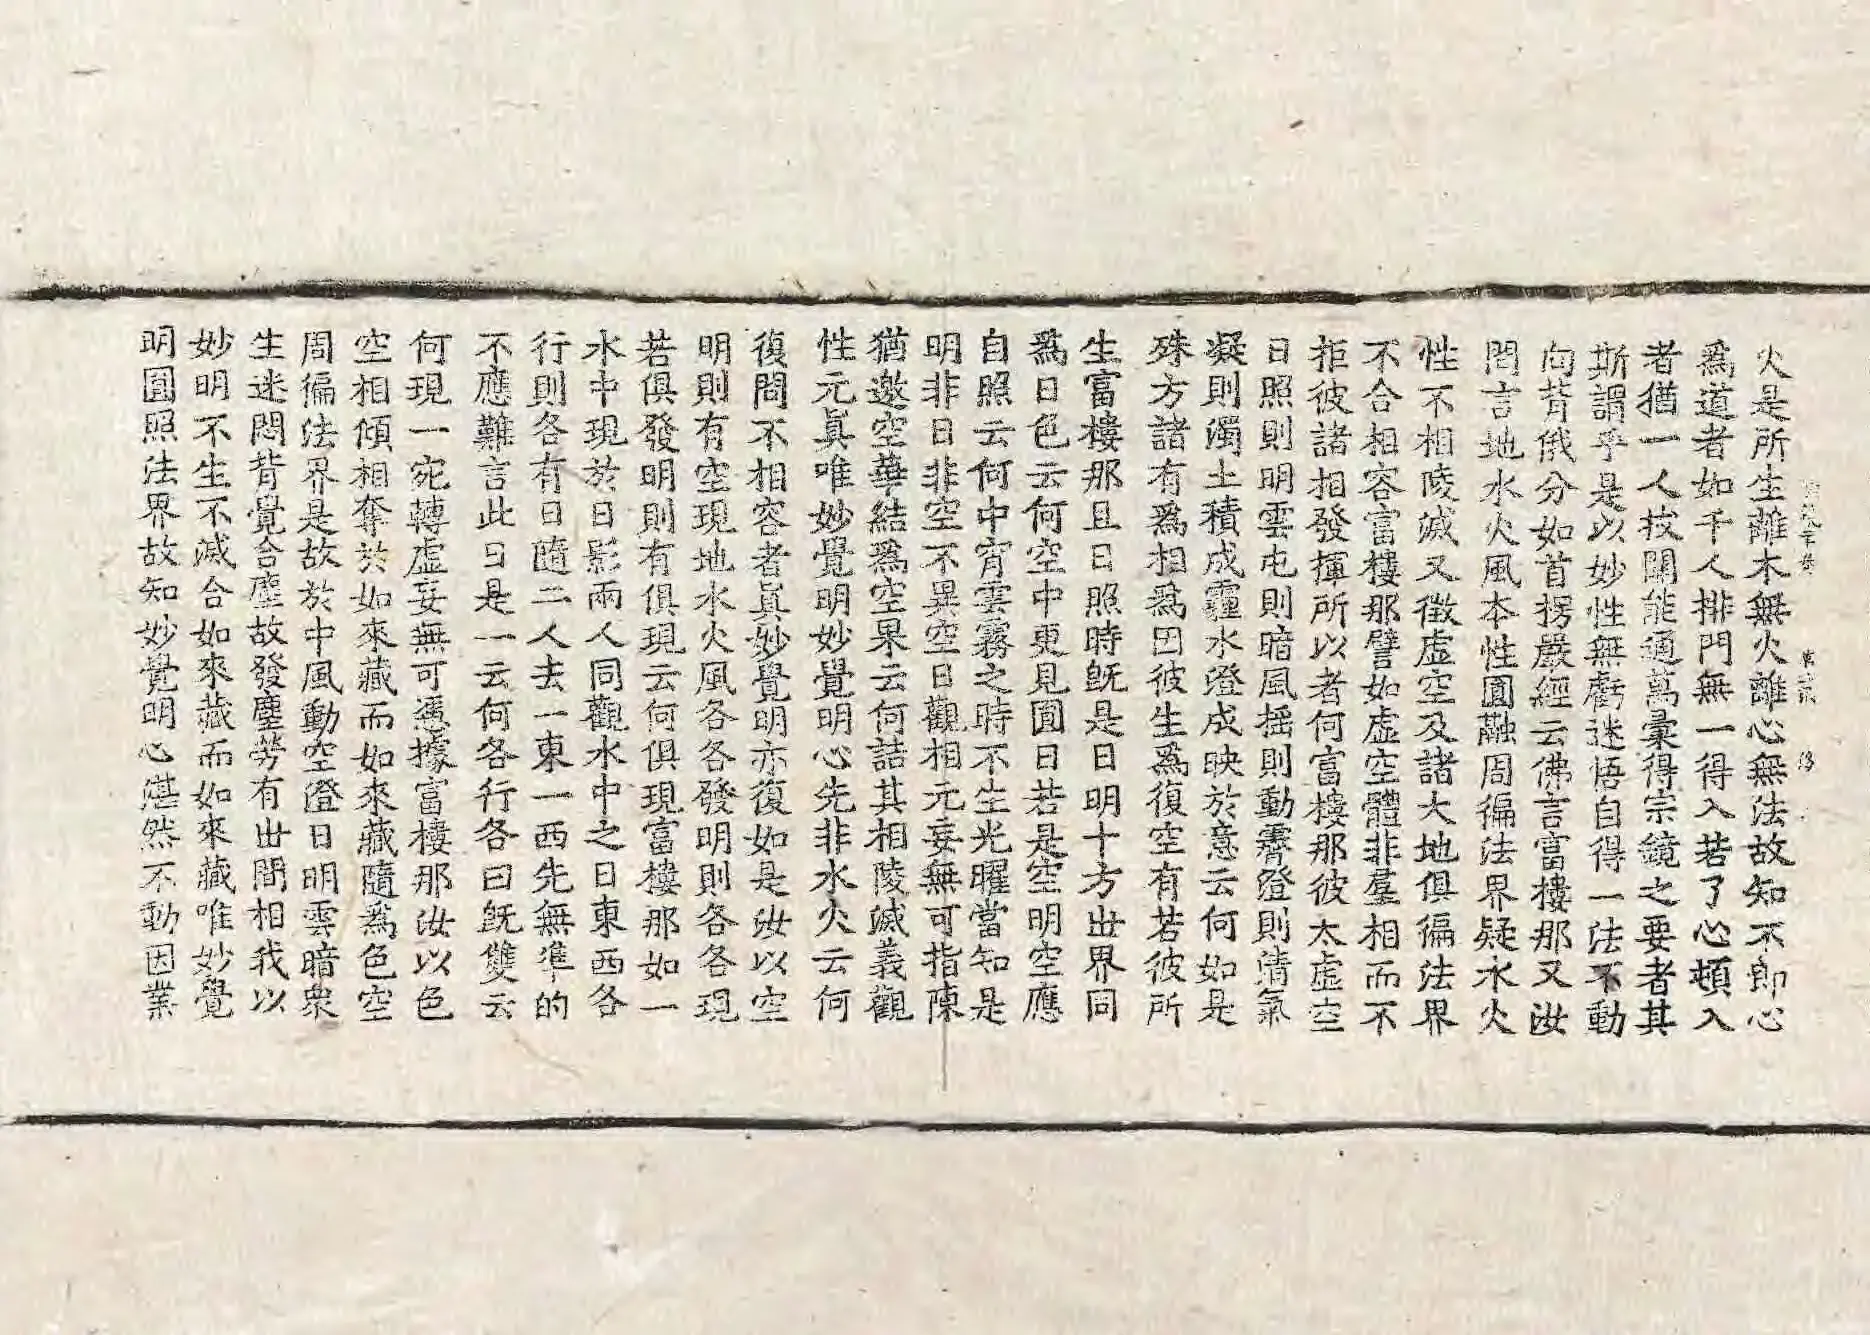 火是所生離木無火離心無法故知不即心
爲道者如千人排門無一得入若了心頓入
者猶一人按關能通萬彙得宗鏡之要者其
斯謂乎是以妙性無虧迷悟自得一法不動
向背俄分如首楞嚴經云佛言富樓那又汝
問言地水火風本性圓融周徧法界疑水火
性不相陵滅又徵虛空及諸大地俱徧法界
不合相容富樓那譬如虛空體非羣相而不
拒彼諸相發揮所以者何富樓那彼太虛空
日照則明雲屯則暗風搖則動霽澄則清氣
凝則濁土積成霾水澄成映於意云何如是
殊方諸有爲相爲因彼生爲復空有若彼所
生富樓那且日照時旣是日明十方世界同
爲日色云何空中更見圓日若是空明空應
自照云何中宵雲霧之時不生光曜當知是
明非日非空不異空日觀相元妄無可指陳
猶邀空華結爲空果云何詰其相陵滅義觀
性元眞唯妙覺明妙覺明心先非水火云何
復問不相容者眞妙覺明亦復如是汝以空
明則有空現地水火風各各發明則各各現
若俱發明則有俱現云何俱現富樓那如一
水中現於日影兩人同觀水中之日東西各
行則各有日隨二人去一東一西先無準的
不應難言此日是一云何各行各日旣雙云
何現一宛轉虛妄無可憑據富樓那汝以色
空相傾相奪於如來藏而如來藏隨爲色空
周徧法界是故於中風動空澄日明雲暗衆
生迷悶背覺合塵故發塵勞有世間相我以
妙明不生不滅合如來藏而如來藏唯妙覺
明圓照法界故知妙覺明心湛然不動因業